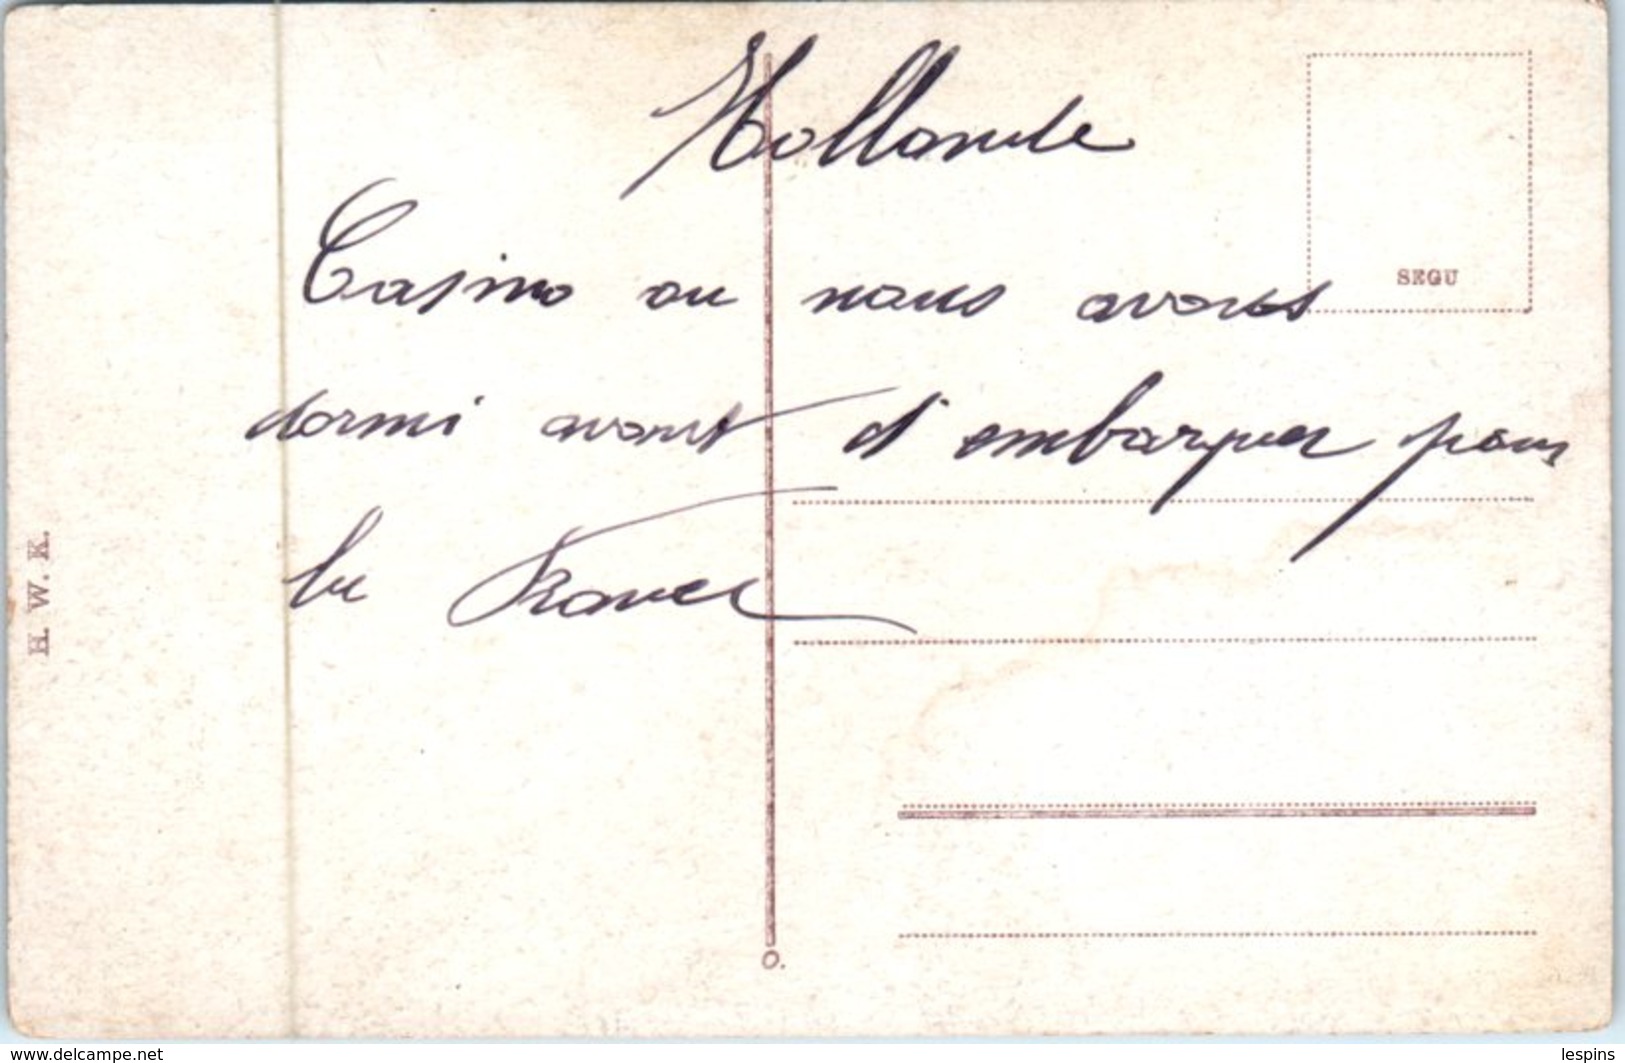 Hollande
SEGU
Casino ou nous avons
dormi avant d'embarquer pour
la France
H. W. K.
O.
www.delcampe.net
lespins